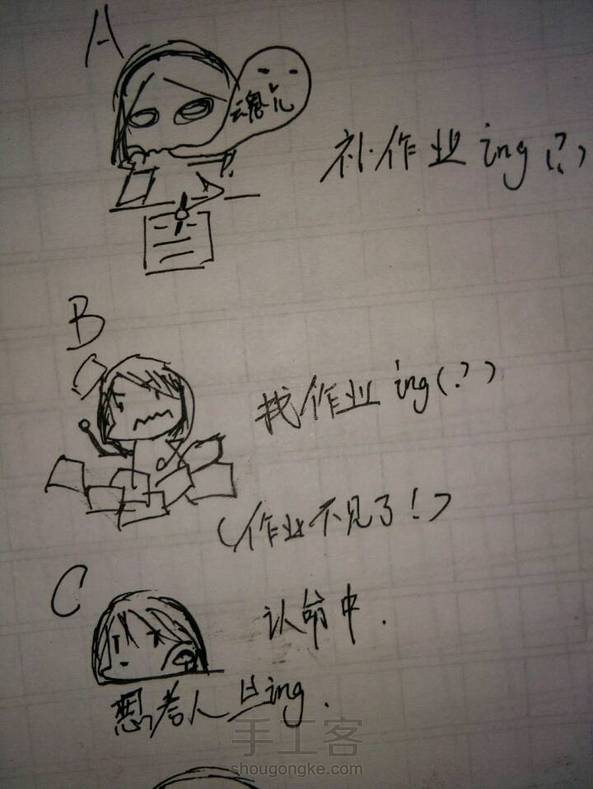 A
魂儿
补作业ing(?)
B
找作业ing(?)
(作业不见了!)
C
认命中.
思考人生ing.
手工客
shougongke.com